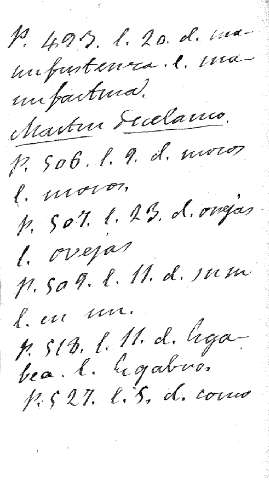 p. 493. l. 20. d. ma-
nifustenra. l. ma-
nufactura.
Martin Duelamo.
p. 506. l. 9. d. moros
l. moros.
p. 507. l. 23. d. ovejas
l. ovejas
p. 509. l. 11. d.
l. en un.
p. 518. l. 11. d. Ega-
bea. l. Egabro.
p. 527. l. 5. d. como